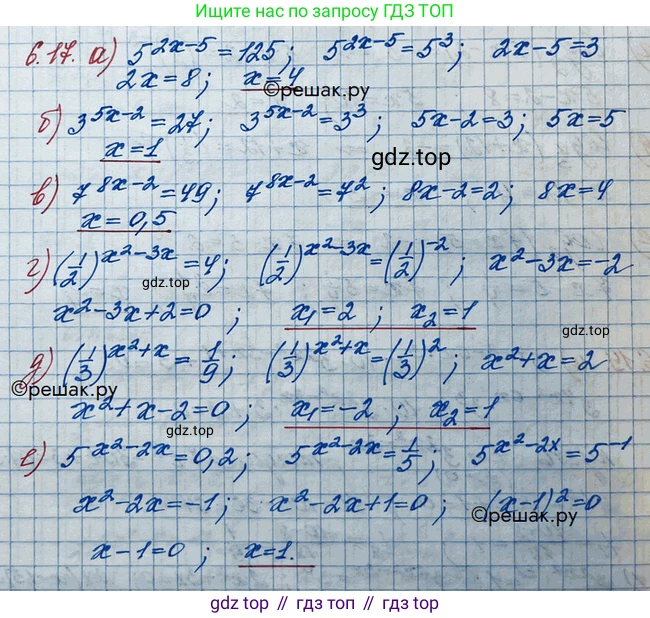 Ищите нас по запросу ГДЗ ТОП
6.17. а) 5^{2x-5} = 125; 5^{2x-5} = 5^3; 2x-5=3
2x=8; x=4
©решак.ру
б) 3^{5x-2} = 27; 3^{5x-2} = 3^3; 5x-2=3; 5x=5
x=1
gdz.top
©решак.ру
в) 7^{8x-2} = 49; 7^{8x-2} = 7^2; 8x-2=2; 8x=4
x=0,5
г) (1/2)^{x^2-3x} = 4; (1/2)^{x^2-3x} = (1/2)^{-2}; x^2-3x=-2
gdz.top
x^2-3x+2=0; x_1=2; x_2=1
gdz.top
д) (1/3)^{x^2+x} = 1/9; (1/3)^{x^2+x} = (1/3)^2; x^2+x=2
©решак.ру
x^2+x-2=0; x_1=-2; x_2=1
gdz.top
е) 5^{x^2-2x} = 0,2; 5^{x^2-2x} = 1/5; 5^{x^2-2x} = 5^{-1}
x^2-2x=-1; x^2-2x+1=0; (x-1)^2=0
©решак.ру
x-1=0; x=1.
gdz.top // гдз.топ // гдз топ